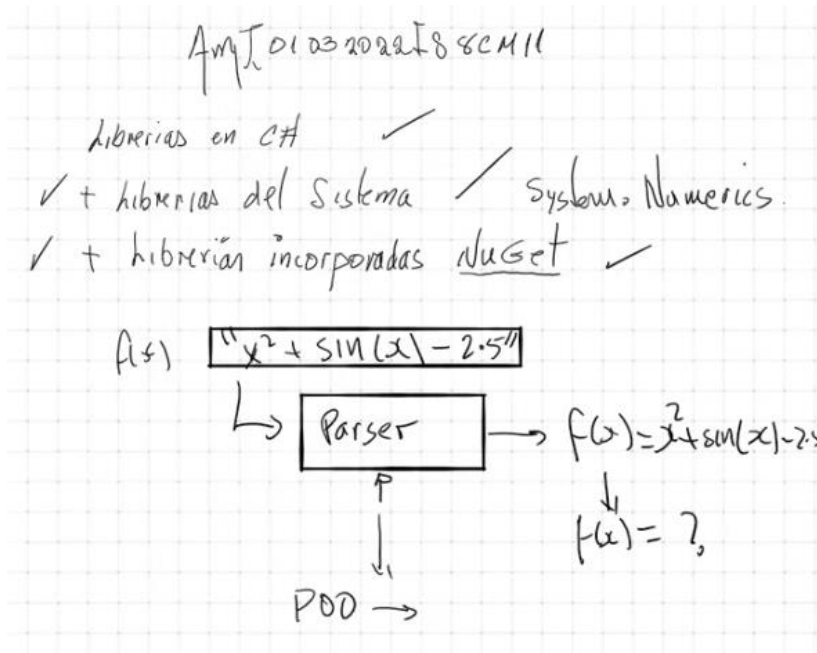 01032022
Librerias en C# ✓
✓ + Librerias del Sistema / System. Numerics.
✓ + Librerias incorporadas NuGet ✓
f(x) "x² + sin(x) - 2.5"
Parser → f(x)=x²+sin(x)-2.5
f(x) = ?
POO →